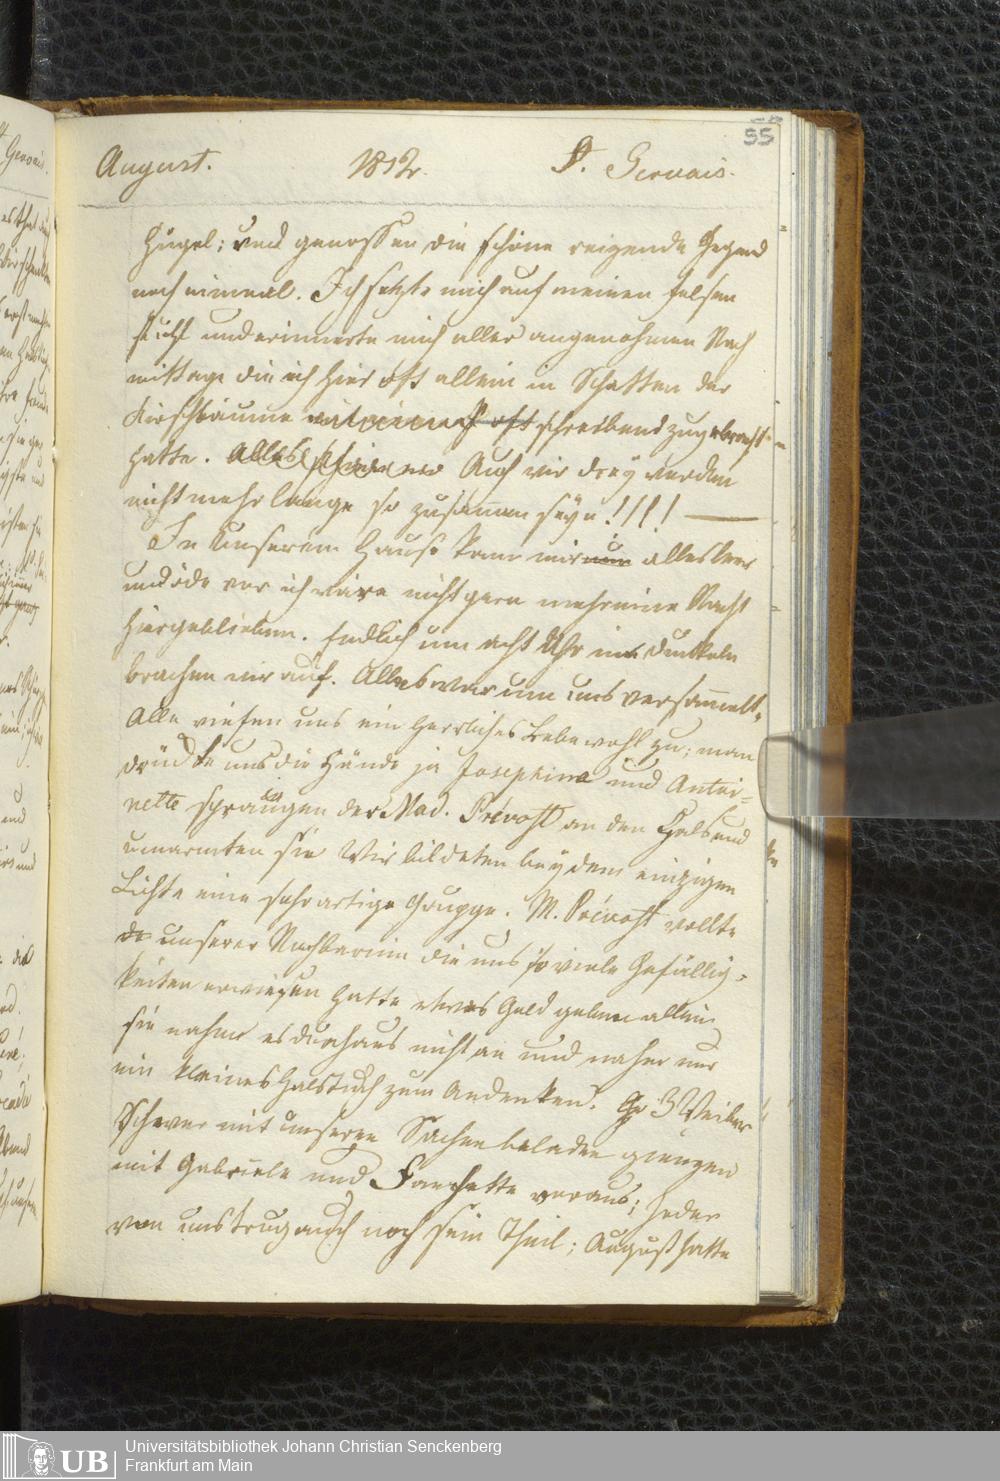 55
August. 1812. St. Gervais.
Hügel; und genossen die schöne reizende Gegend
noch einmal. Ich setzte mich auf meinen Felsen
sitz und erinnerte mich aller angenehmen Nach
mittage die ich hier oft allein im Schatten der
Kirschbäume oft schreibend zugebracht
hatte. Alles schien Auch wir drey werden
nicht mehr lange so zusamen seyn!!!! —
In unserem Hause kam mir nun alles leer
und öde vor ich wäre nicht gern mehr eine Nacht
hier geblieben. Endlich um acht Uhr im Dunkeln
brachen wir auf. Alles war um uns versamelt,
Alle riefen uns ein herzliches Lebewohl zu; man
drückte uns die Hände ja Josephine und Antoi=
nette sprangen der Mad. Prévost an den Hals und
umarmten sie Wir bildeten bey dem einzigen
Lichte eine sehr artige Gruppe. M. Prévost wollte
unserer Nachbarinn die uns so viele Gefällig=
keiten erwiesen hatte etwas Geld geben allein
sie nahm es durchaus nicht an und nahm nur
ein kleines Halstuch zum Andenken. 3 Weiber
schwer mit unseren Sachen beladen giengen
mit Gabriele und Fanchette voraus; Jeder
von uns trug auch noch sein Theil; August hatte
UB Universitätsbibliothek Johann Christian Senckenberg
Frankfurt am Main